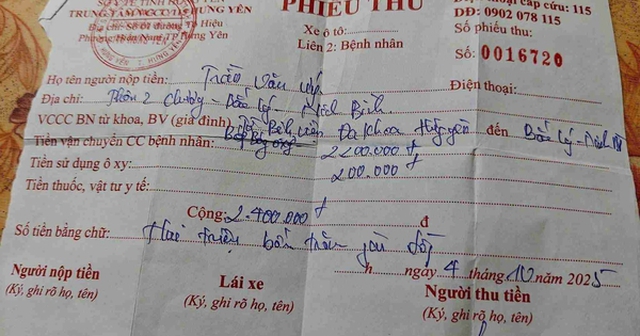 SỞ Y TẾ TỈNH HƯNG YÊN
TRUNG TÂM VCCC 115 HƯNG YÊN
Địa chỉ: Số 01 đường Tô Hiệu
Phường Hiến Nam, TP Hưng Yên
PHIẾU THU
Xe ô tô:
Liên 2: Bệnh nhân
thoại cấp cứu: 115
DĐ: 0902 078 115
Số phiếu thu:
Số: 0016720
Họ tên người nộp tiền: Trần Văn
Điện thoại:
Địa chỉ: Thôn 2 - Bắc Lý - Ninh Bình
VCCC BN từ khoa, BV (gia đình) Bệnh viện Đa Khoa Hưng Yên đến Bắc Lý - Ninh
Tiền vận chuyển CC bệnh nhân: 2200.000 đ
Tiền sử dụng ô xy: 200.000 đ
Tiền thuốc, vật tư y tế:
Cộng: 2.400.000 đ đ
Số tiền bằng chữ: Hai triệu bốn trăm đồng
h ngày 4 tháng 10 năm 2025
Người nộp tiền
(Ký, ghi rõ họ, tên)
Lái xe
(Ký, ghi rõ họ, tên)
Người thu tiền
(Ký, ghi rõ họ, tên)